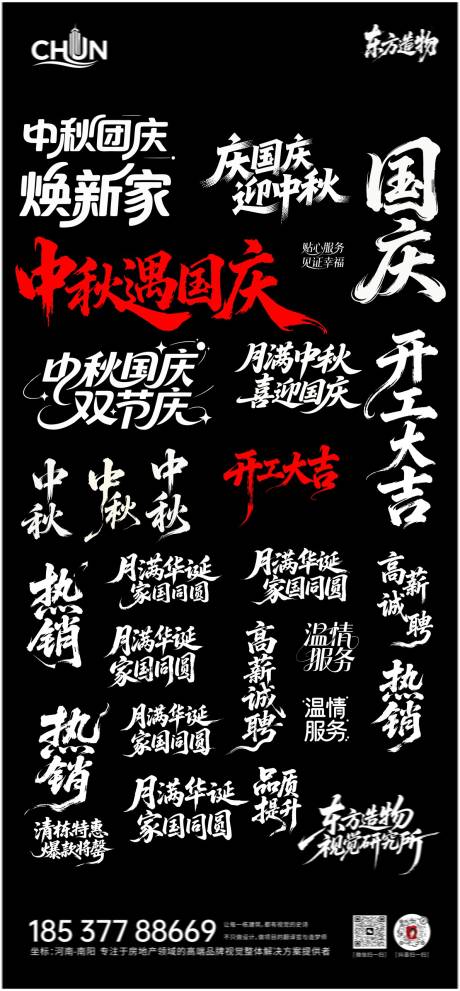 CHUN
东方造物
中秋团庆
焕新家
庆国庆
迎中秋
国庆
贴心服务
见证幸福
中秋遇国庆
中秋国庆
双节庆
月满中秋
喜迎国庆
开工大吉
中秋
中秋
中秋
开工大吉
热销
月满华诞
家国同圆
月满华诞
家国同圆
高薪
诚聘
月满华诞
家国同圆
高薪诚聘
温情
服务
热销
热销
月满华诞
家国同圆
温情
服务
月满华诞
家国同圆
品质
提升
清栋特惠
爆款将罄
东方造物
视觉研究所
185 377 88669
让每一栋建筑,都有视觉的史诗
不只做设计,做项目的翻译官与造梦师
坐标:河南-南阳 专注于房地产领域的高端品牌视觉整体解决方案提供者
[微信扫一扫]
[抖音扫一扫]